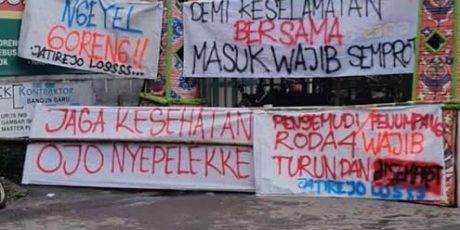 NGEYEL
GORENG!!
JATIREJO LOSSSS..
DEMI KESELAMATAN
BERSAMA
MASUK WAJIB SEMPROT
KONTRAKTOR
BANGUN BARU
JAGA KESEHATAN
OJO NYEPELEKKE
PENGEMUDI/PENUMPANG
RODA 4 WAJIB
TURUN DAN DISEMPROT
JATIREJO LOSSS